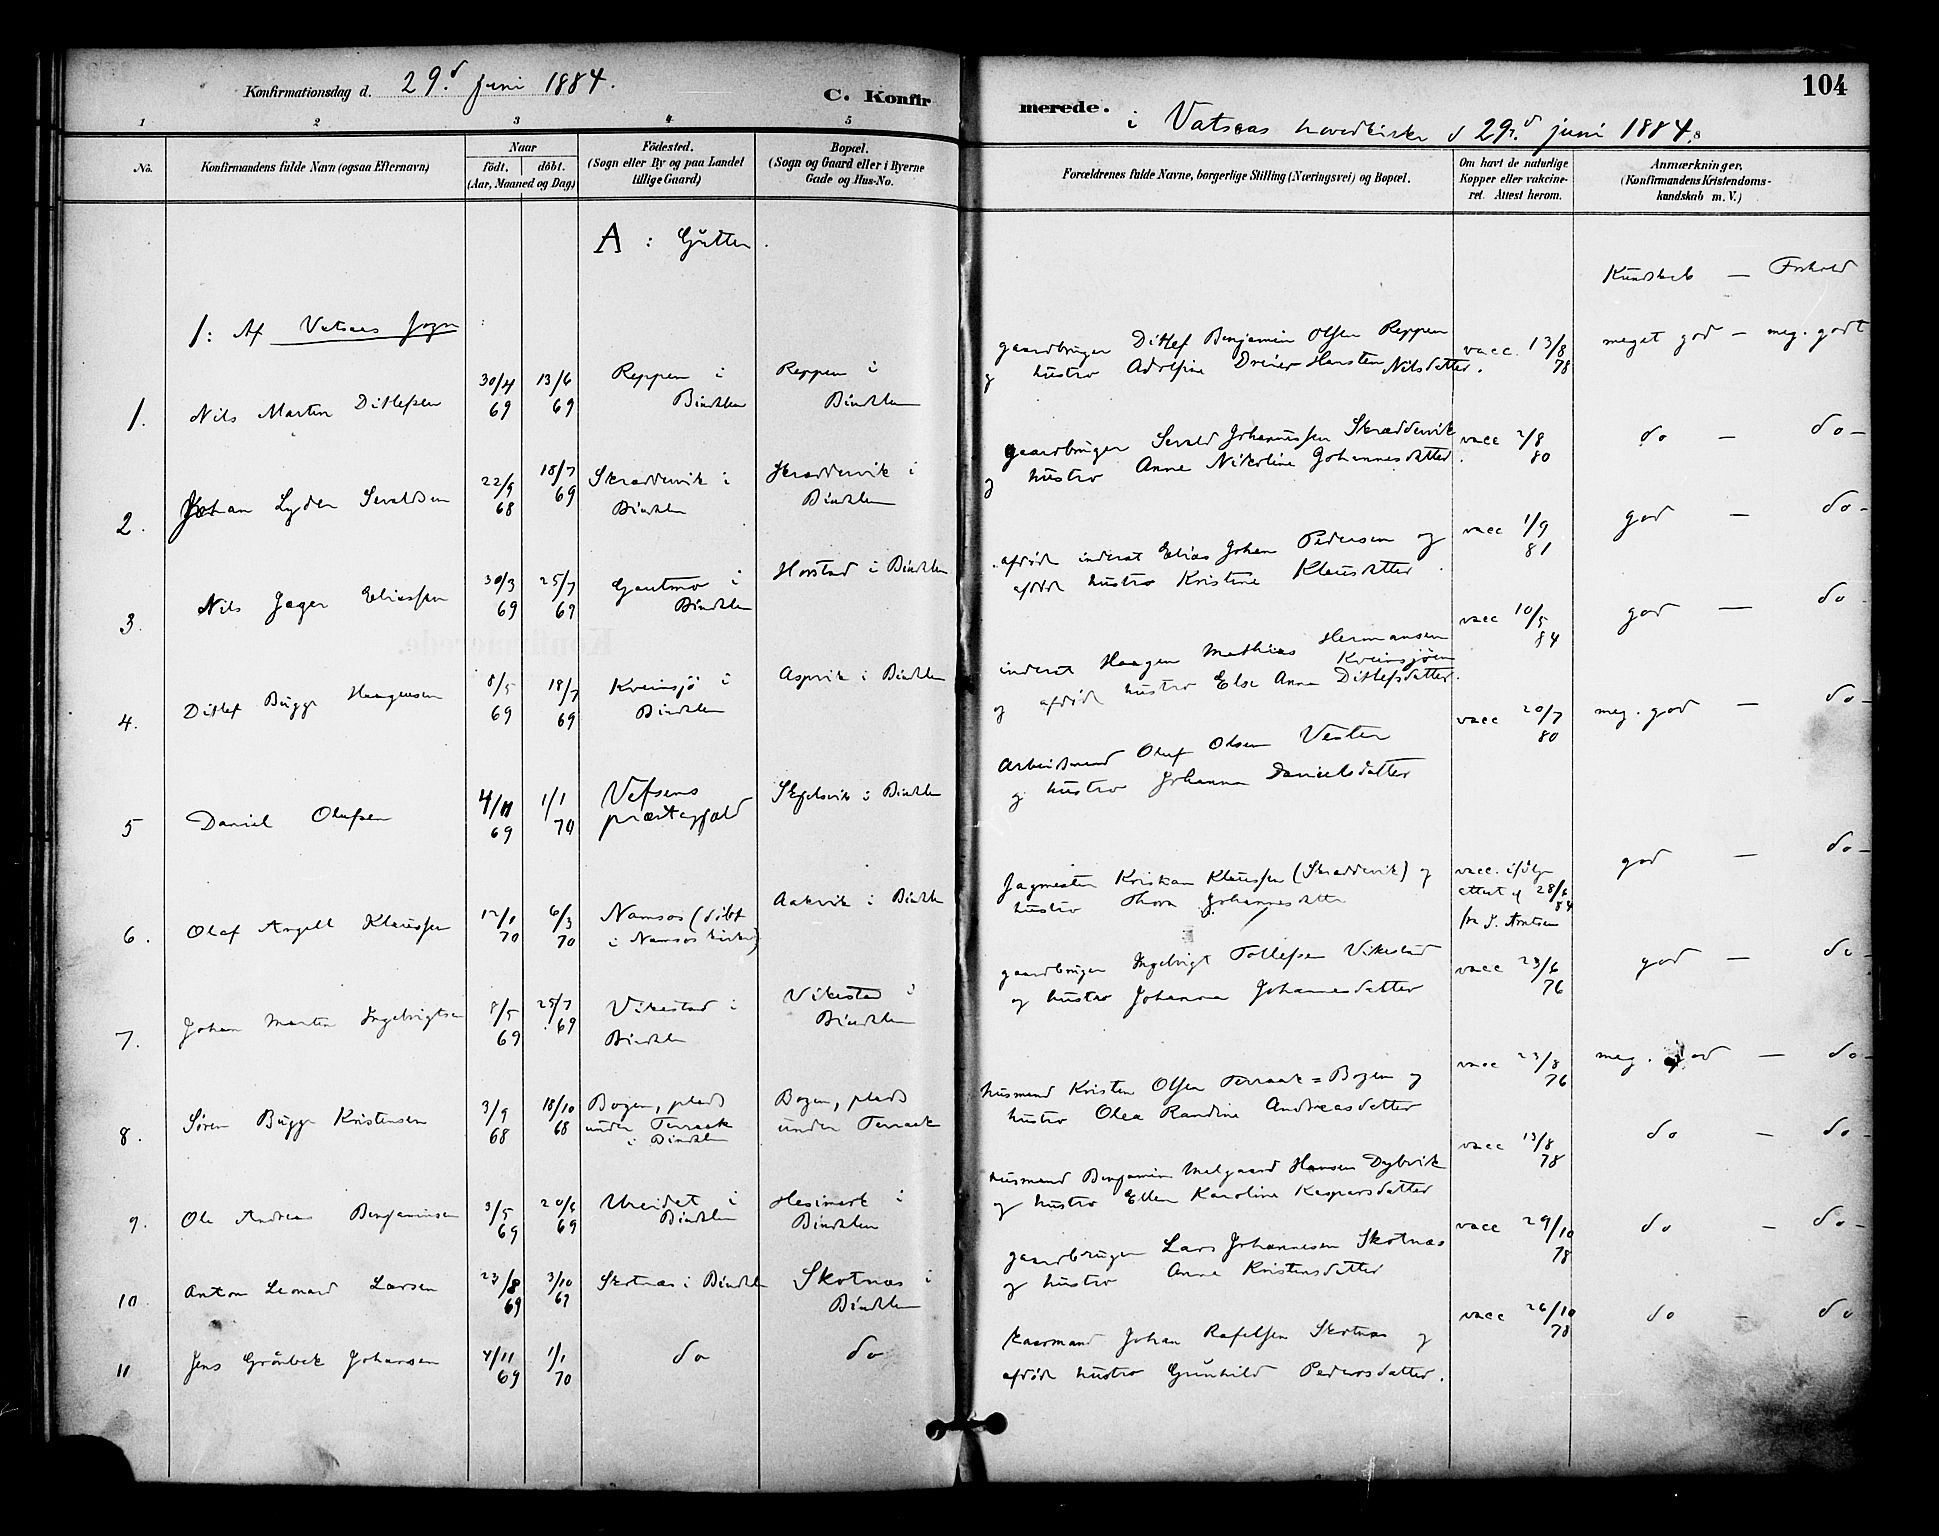 Konfirmationsdag d. 29d Juni 1884.
C. Konfir
merede. i Vatsaas hovedkirke d 29d juni 1884.
104
1 2 3 4 5 8
No.
Konfirmandens fulde Navn (ogsaa Efternavn)
Naar
födt. döbt.
(Aar, Maaned og Dag)
Födested.
(Sogn eller By og paa Landet
tillige Gaard)
Bopæl.
(Sogn og Gaard eller i Byerne
Gade og Hus-No.
Forældrenes fulde Navne, borgerlige Stilling (Næringsvei) og Bopæl.
Om havt de naturlige
Kopper eller vakcine-
ret. Attest herom.
Anmærkninger.
(Konfirmandens Kristendoms-
kundskab m. V.)
A : Gutter.
Kundskab — Forhold
1: Af Vatsaas sogn :
1. Nils Martin Ditlefsen
30/4 69
13/6 69
Reppen i
Bindalen
Reppen i
Bindalen
gaardbruger Ditlef Benjamin Olsen Reppen
og hustro Adolfine Dreier Hansten Nilsdatter.
vacc. 13/8 78
meget god — meg. godt
2. Johan Lyder Sevaldsen
22/9 68
18/7 69
Skræddervik i
Bindalen
Skræddervik i
Bindalen
gaardbruger Sevald Johannessen Skræddervik
og hustro Anne Nikoline Johannesdatter.
vacc 2/8 80
do — do —
3. Nils Jager Eliassen
30/3 69
25/7 69
Gautmo i
Bindalen
Horstad i Bindalen
afdöde inderst Elias Johan Pedersen og
afdöde hustro Kristine Klausdatter.
vacc 1/9 81
god — do —
4. Ditlef Bugge Haagensen
8/5 69
18/7 69
Kveinsjö i
Bindalen
Aspvik i Bindalen
inderst Haagen Mathias Hermansen
Kveinsjöen
og afdöde hustro Else Anna Ditlefsdatter.
vacc 10/5 84
god — do
5 Daniel Olufsen
4/11 69
1/1 70
Vefsens
præstegjæld
Skjelsvik i Bindalen
Arbeidsmand Oluf Olsen Vesten
og hustro Johanna Danielsdatter
vacc 20/7 80
meg. god — do —
6. Olaf Angell Klaussen
12/1 70
6/3 70
Namsos (döbt
i Namsos kirke)
Aakvik i Bindalen
Sagmester Kristian Klaussen (Skræddervik) og
hustro Thora Johannesdatter
vacc. ifölge
attest af 28/6 84
fra J. Arntsen
god — do —
7. Johan Martin Ingebrigtsen
8/5 69
25/7 69
Vikestad i
Bindalen
Vikestad i
Bindalen
gaardbruger Ingebrigt Tollefsen Vikestad
og hustro Johanna Johannesdatter
vacc 23/6 76
god — do —
8. Sören Bugge Kristensen
3/9 68
18/10 68
Bogen, plads
under Terraak
i Bindalen
Bogen, plads
under Terraak
husmand Kristen Olsen Terraak=Bogen og
hustro Olea Randine Andreasdatter
vacc 23/8 76
meg. god — do —
9. Ole Andreas Benjaminsen
3/5 69
20/6 69
Ureidet i
Bindalen
Hesimark i
Bindalen
husmand Benjamin Melgaard Hansen Dybvik
og hustro Ellen Karoline Kaspersdatter
vacc 13/8 78
do — do —
10. Anton Leonard Larsen
23/8 69
3/10 69
Skotnæs i Bindalen
Skotnæs i
Bindalen
gaardbruger Lars Johannesen Skotnæs
og hustro Anna Kristensdatter
vacc 29/10 78
do — do —
11 Jens Grönbek Johansen
4/11 69
1/1 70
do
do
kaarmand Johan Rafelsen Skotnæs og
afdöde hustro Gunhild Pedersdatter.
vacc 26/10 78
do — do